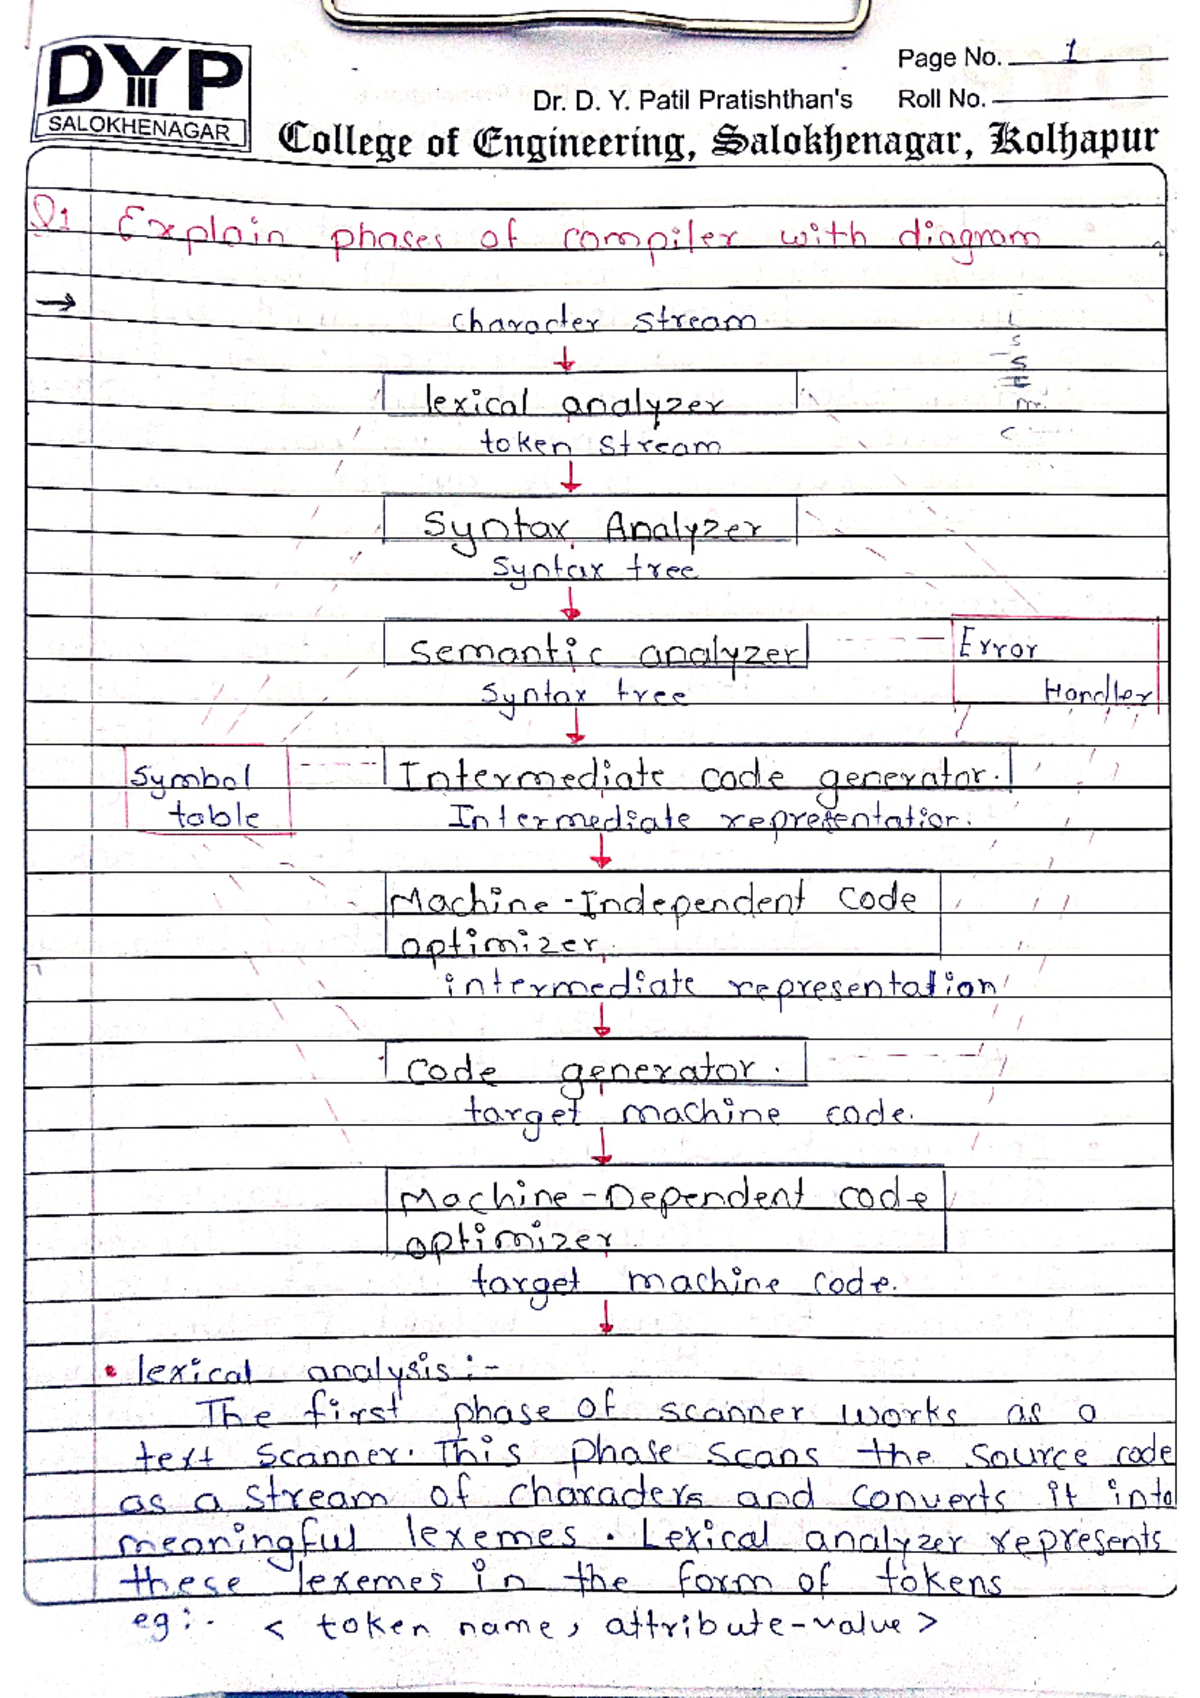 DYP
SALOKHENAGAR
Page No. 1
Dr. D. Y. Patil Pratishthan's
Roll No.
College of Engineering, Salokhenagar, Kolhapur
Q1 Explain phases of compiler with diagram
→
character stream
lexical analyzer
token stream
Syntax Analyzer
Syntax tree
Semantic analyzer
Error
Handler
Syntax tree
Symbol
table
Intermediate code generator.
Intermediate representation.
Machine-Independent code
optimizer.
intermediate representation
Code generator.
target machine code.
Machine-Dependent code
optimizer
target machine code.
• lexical analysis:-
The first phase of scanner works as a
text scanner. This phase scans the source code
as a stream of characters and converts it into
meaningful lexemes. Lexical analyzer represents
these lexemes in the form of tokens
eg:- < token name, attribute-value >